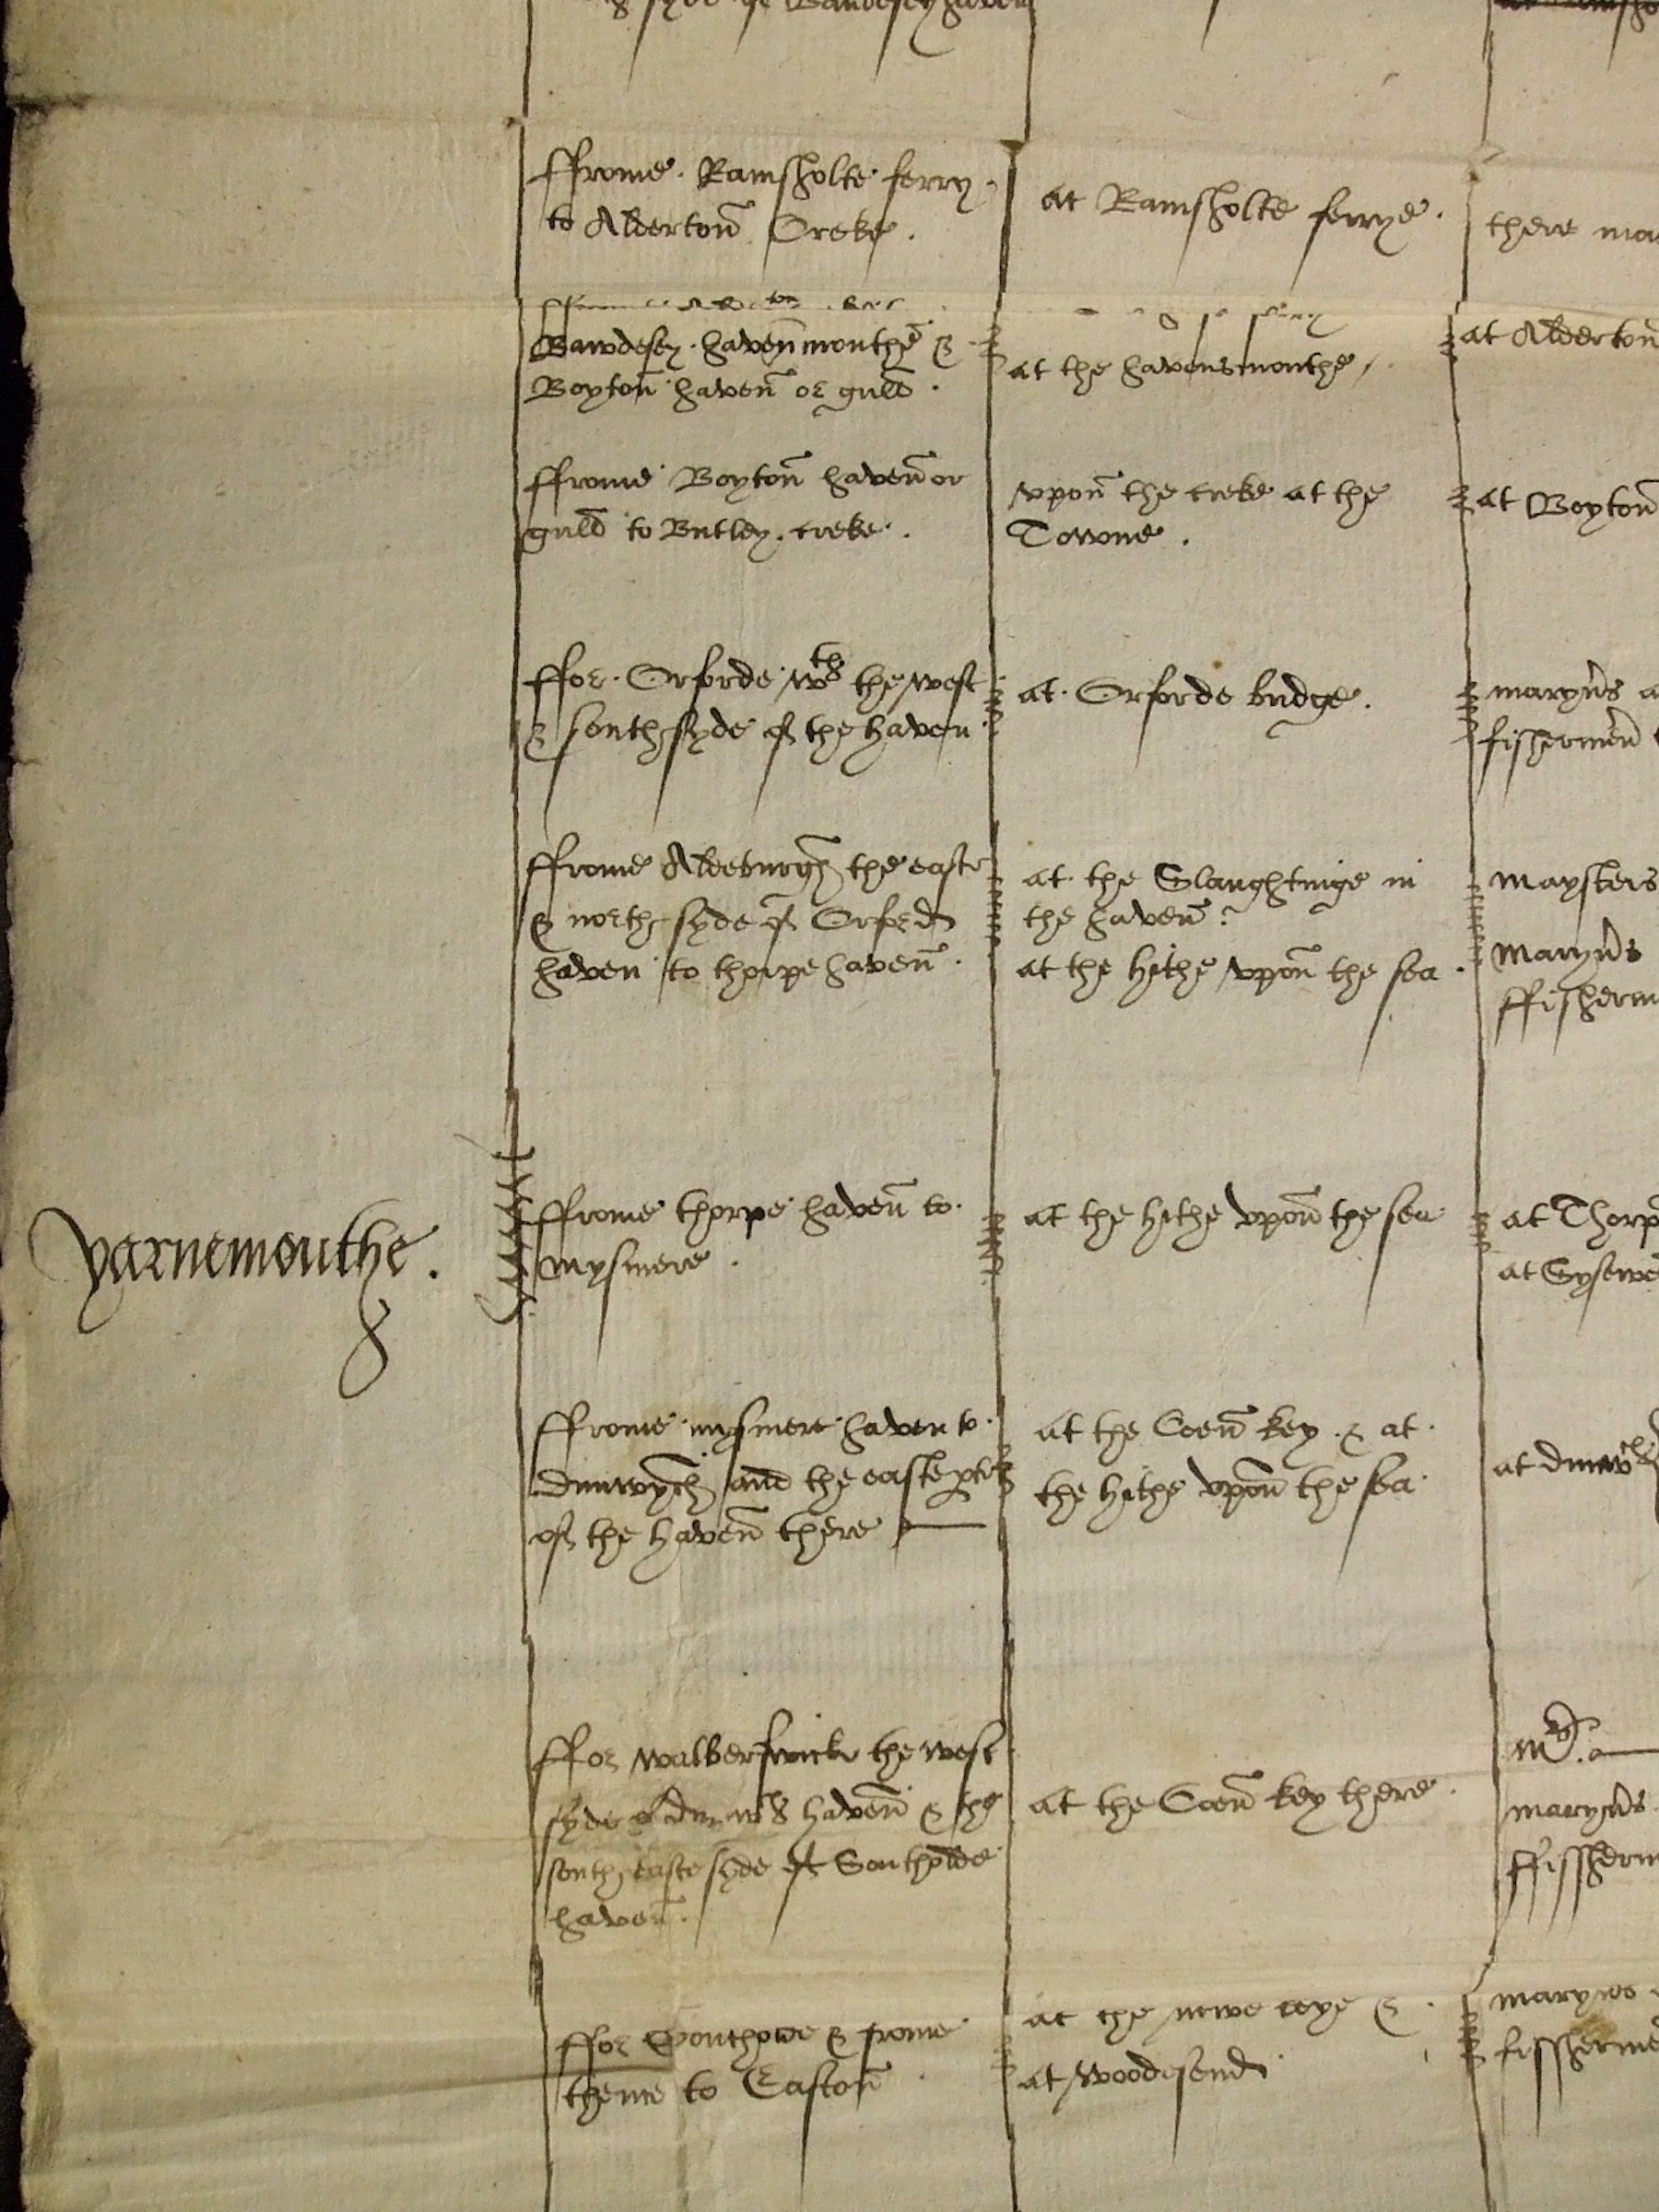 syde of Baudesey haven
ffrome Ramsholte ferry
to Aldertoñ Creke.
at Ramsholte ferrye.
there
Bawdesey haveñmouthe &
Boytoñ haveñ or gull
at the havensmouthe
at Aldertoñ
ffrome Boytoñ haveñ or
gull to Butley creke.
vpoñ the creke at the
Towne.
at Boytoñ
ffor Orforde wth the west
& southsyde of the haven
at Orforde bridge.
maryn's
fisshermen
ffrome Aldeburgh the easte
& northsyde of Orford
haven to thorpe haveñ.
at the Slaughtinge in
the haveñ
at the hithe vpoñ the sea
maysters
maryn's
ffissherm
yarnemouthe.
ffrome thorpe haveñ to
mysmere.
at the hithe vpoñ the sea
at Thorp
at Sysewe
ffrome mysmere haven to
dunwych and the easte ptes
of the haveñ there
at the Coeñ key & at
the hithe vpoñ the sea
at dunwch
ffor walberswick the west
syde of haveñ & the
southeaste syde of Southolde
haveñ.
at the Coeñ key there
md.
maryn's
ffissherm
ffor & frome
thence to Eastoñ
at the newe keye &
at woodsend
maryn's
fissherme